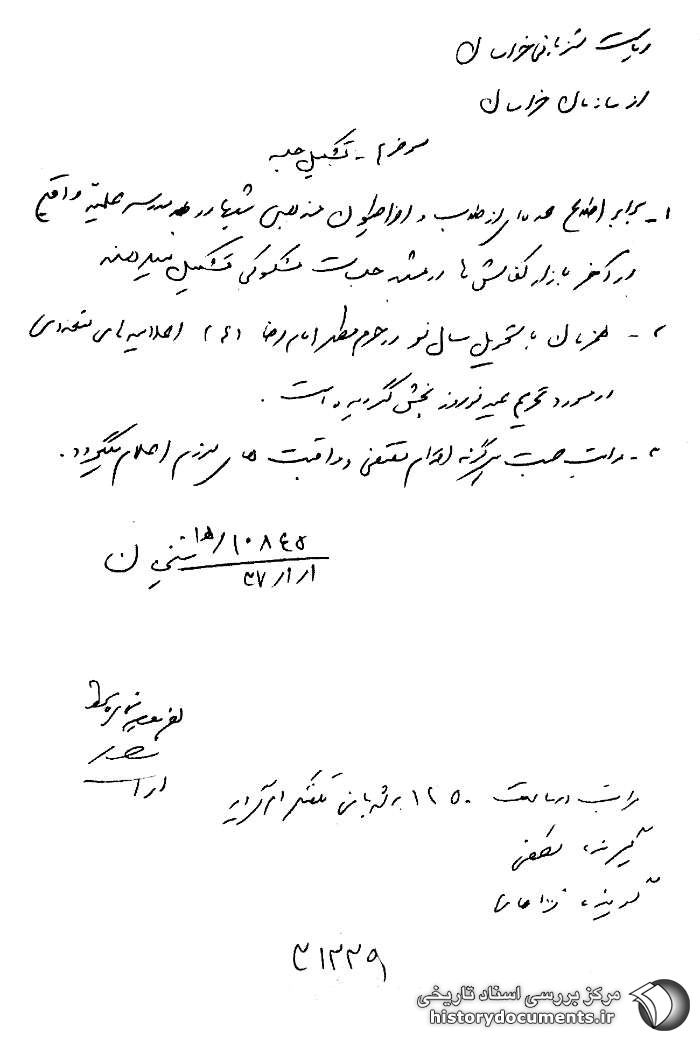 ریاست شهربانی خراسان
از سازمان خراسان
موضوع - تشکیل جلسه
۱- برابر اطلاع عده‌ای از طلاب و افراطیون مذهبی شبها در مدرسه علمیه واقع
در آخر بازار کفاش‌ها در مشهد جلسات مشکوکی تشکیل میدهند
۲- همزمان با تحویل سال نو در حرم مطهر امام رضا (ع) اعلامیه‌های متعددی
در مورد تحریم عید نوروز پخش گردیده است.
۳- مراتب جهت هرگونه اقدام مقتضی و مراقبت های لازم اعلام میگردد.
۱۰۸۴۵/ه‍۱
۳۷/۱/۱
مراتب در ساعت ۱۲۵۰ به شهربانی تلفنگرام گردید
گیرنده، لطفی
گوینده،
۳۱۲۲۹
مرکز بررسی اسناد تاریخی
historydocuments.ir